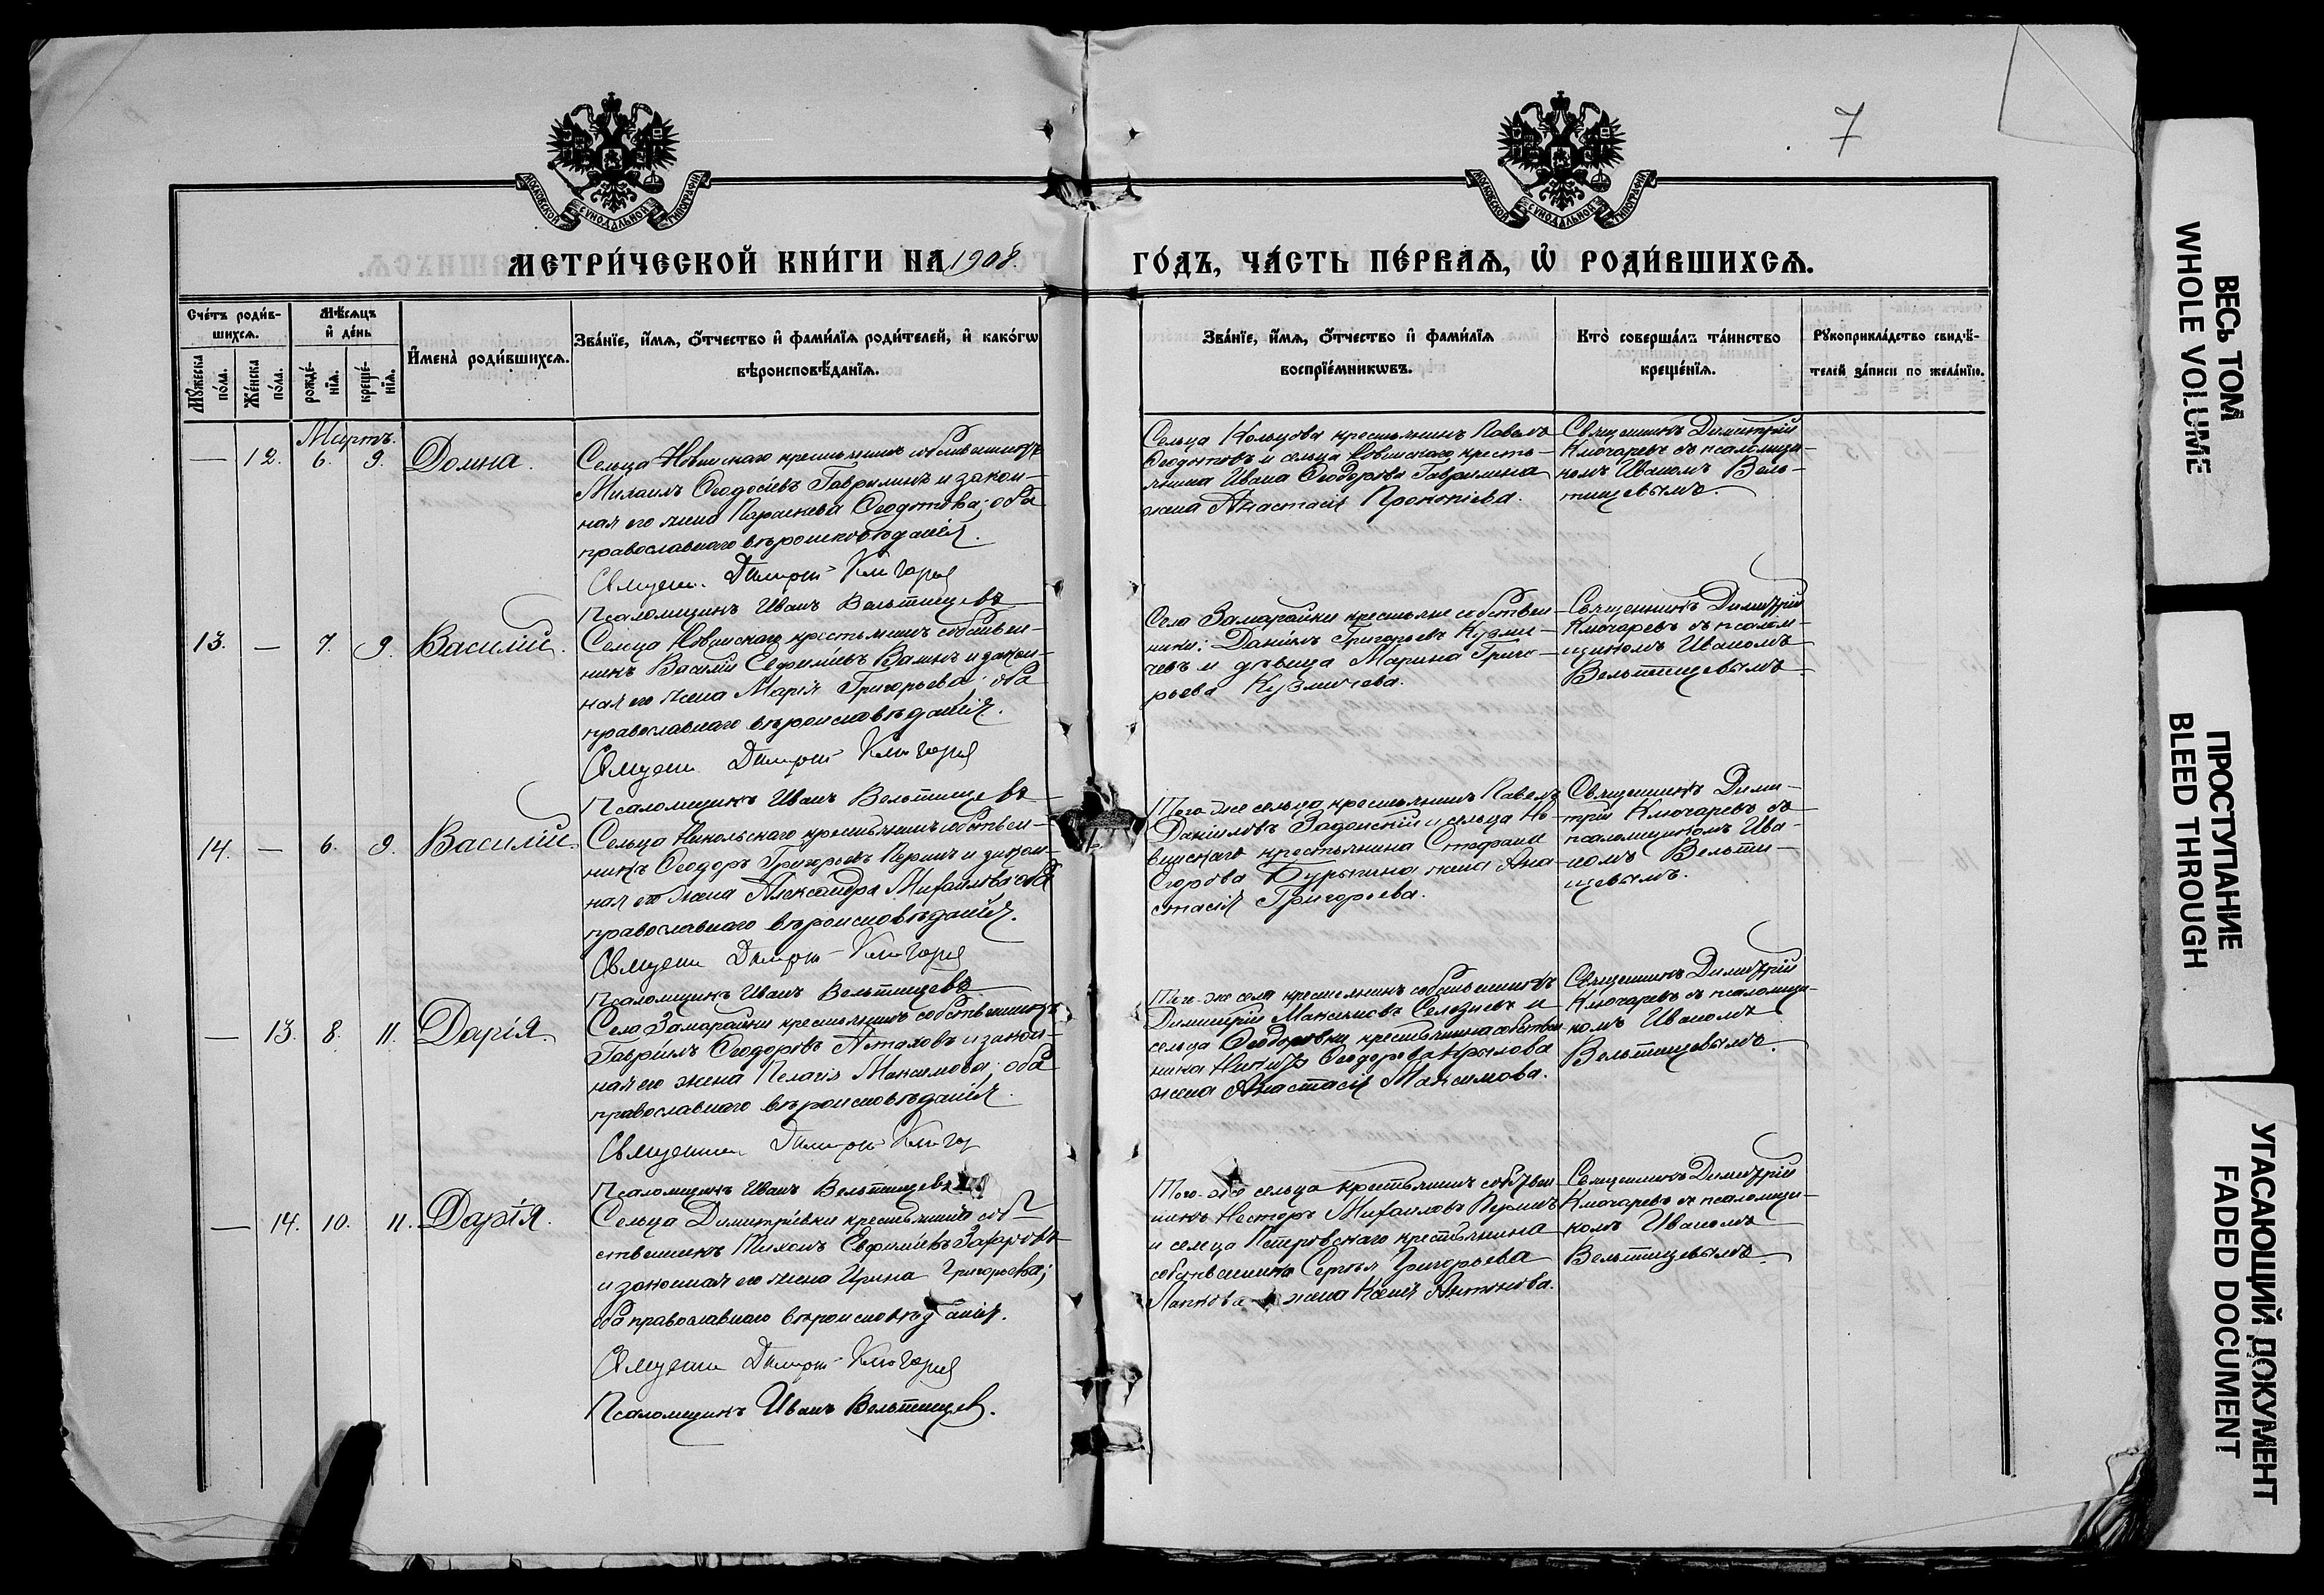 7
МОСКОВСКОЙ СѴНОДАЛЬНОЙ ТИПОГРАФІИ
МОСКОВСКОЙ СѴНОДАЛЬНОЙ ТИПОГРАФІИ
МЕТРИ́ЧЕСКОЙ КНИ́ГИ НА 1908.
ГО́ДЪ, ЧА́СТЬ ПЕ́РВАѦ, Ѡ҆ РОДИ́ВШИХСѦ.
Сче́тъ роди́в-
шихсѧ.
Мѹ́жеска по́ла.
Же́нска по́ла.
Мѣ́сѧцъ
и҆ де́нь
рожде́-
нїѧ.
креще́-
нїѧ.
И҆мена̀ роди́вшихсѧ.
Зва́нїе, и҆́мѧ, ѻ҆́тчество и҆ фами́лїѧ роди́телей, и҆ како́гѡ
вѣроисповѣ́данїѧ.
Зва́нїе, и҆́мѧ, ѻ҆́тчество и҆ фами́лїѧ
воспрїе́мникѡвъ.
Кто̀ соверша́лъ та́инство
креще́нїѧ.
Рѹкоприкла́дство свидѣ́-
телей за́писи по жела́нїю.
Мартъ.
— 12. 6. 9. Домна.
Сельца Новинскаго крестьянинъ собственникъ
Михаилъ Ѳеодосіевъ Гаврилинъ и закон-
ная его жена Параскева Ѳеодотова; оба
православнаго вѣроисповѣданія.
Священ. Димитрій Ключарев
Псаломщикъ Иванъ Вельтищевъ
Сельца Кольцова крестьянинъ Павелъ
Ѳеодотовъ и сельца Новинскаго кресть-
янина Ивана Ѳеодорова Гаврилина
жена Анастасія Прокопіева.
Священникъ Димитрій
Ключаревъ съ псаломщи-
комъ Иваномъ Вель-
тищевымъ.
13. — 7. 9. Василій.
Сельца Новинскаго крестьянинъ собствен-
никъ Василій Евфиміевъ Валинъ и закон-
ная его жена Марія Григорьева; оба
православнаго вѣроисповѣданія.
Священ Димитрій Ключарев
Псаломщикъ Иванъ Вельтищевъ
Села Замарайки крестьяне собствен-
ники: Даніилъ Григорьевъ Кузми-
чевъ и дѣвица Марина Григо-
рьева Кузмичева.
Священникъ Димитрій
Ключаревъ съ псалом-
щикомъ Иваномъ
Вельтищевымъ.
14. — 6. 9. Василій.
Сельца Никольскаго крестьянинъ собствен-
никъ Ѳеодоръ Григорьевъ Перинъ и закон-
ная его жена Александра Михаилова; оба
православнаго вѣроисповѣданія.
Священ Димитрій Ключарев
Псаломщикъ Иванъ Вельтищевъ
Того-же сельца крестьянинъ Павелъ
Даніиловъ Задонскій и сельца Но-
винскаго крестьянина Стефана
Егорова Бурыкина жена Ана-
стасія Григорьева.
Священникъ Дими-
трій Ключаревъ съ
псаломщикомъ Ива-
номъ Вельти-
щевымъ.
— 13. 8. 11. Дарія.
Села Замарайки крестьянинъ собственникъ
Гавріилъ Ѳеодоровъ Астаховъ и закон-
ная его жена Пелагія Максимова; оба
православнаго вѣроисповѣданія.
Священник Димитрій Ключар
Псаломщикъ Иванъ Вельтищевъ
Того-же села крестьянинъ собственникъ
Димитрій Максимовъ Селезневъ и
сельца Ѳеодоровки крестьянина собствен-
ника Никиты Ѳеодорова Крылова
жена Анастасія Максимова.
Священникъ Димитрій
Ключаревъ съ псаломщи-
комъ Иваномъ
Вельтищевымъ.
— 14. 10. 11. Дарія.
Сельца Димитріевки крестьянинъ соб-
ственникъ Тихонъ Евфиміевъ Захаровъ
и законная его жена Ирина Григорьева;
оба православнаго вѣроисповѣданія.
Священн Димитрій Ключарев
Псаломщикъ Иванъ Вельтищев.
Того-же сельца крестьянинъ собствен-
никъ Несторъ Михаиловъ
и сельца Петровскаго крестьянина
собственника Сергѣя Григорьева
жена Ксенія Антонова.
Священникъ Димитрій
Ключаревъ съ псаломщи-
комъ Иваномъ
Вельтищевымъ.
ВЕСЬ ТОМ
WHOLE VOLUME
ПРОСТУПАНИЕ
BLEED THROUGH
УГАСАЮЩИЙ ДОКУМЕНТ
FADED DOCUMENT